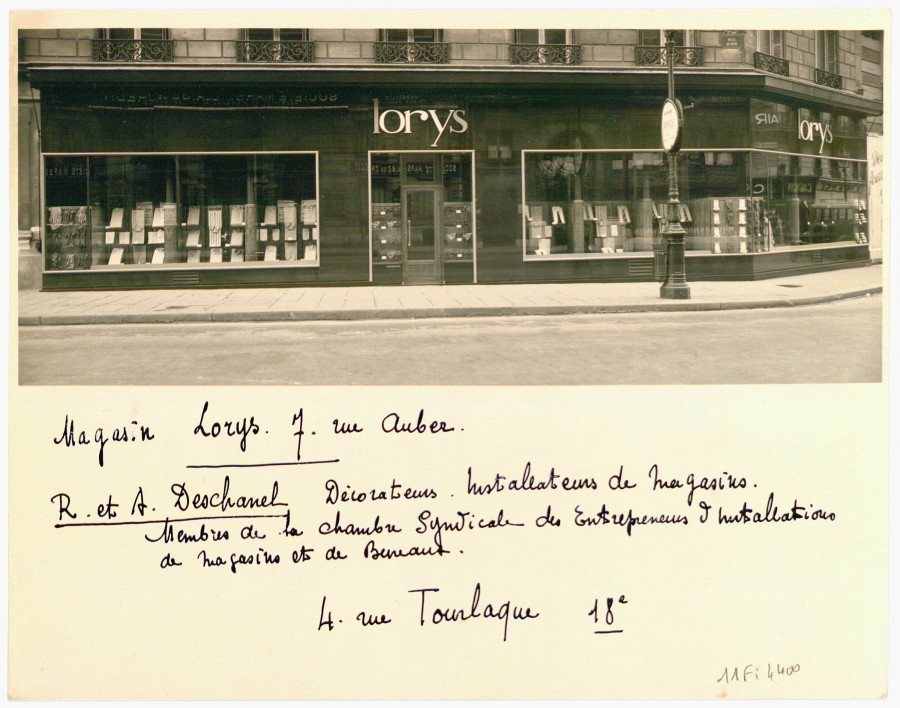 lorys
lorys
AIR
Magasin Lorys. 7. rue Auber.
R. et A. Deschanel Décorateurs. Installateurs de Magasins.
Membres de la chambre Syndicale des Entrepreneurs d'Installations
de magasins et de Bureaux.
4. rue Tourlaque 18e
11Fi4400